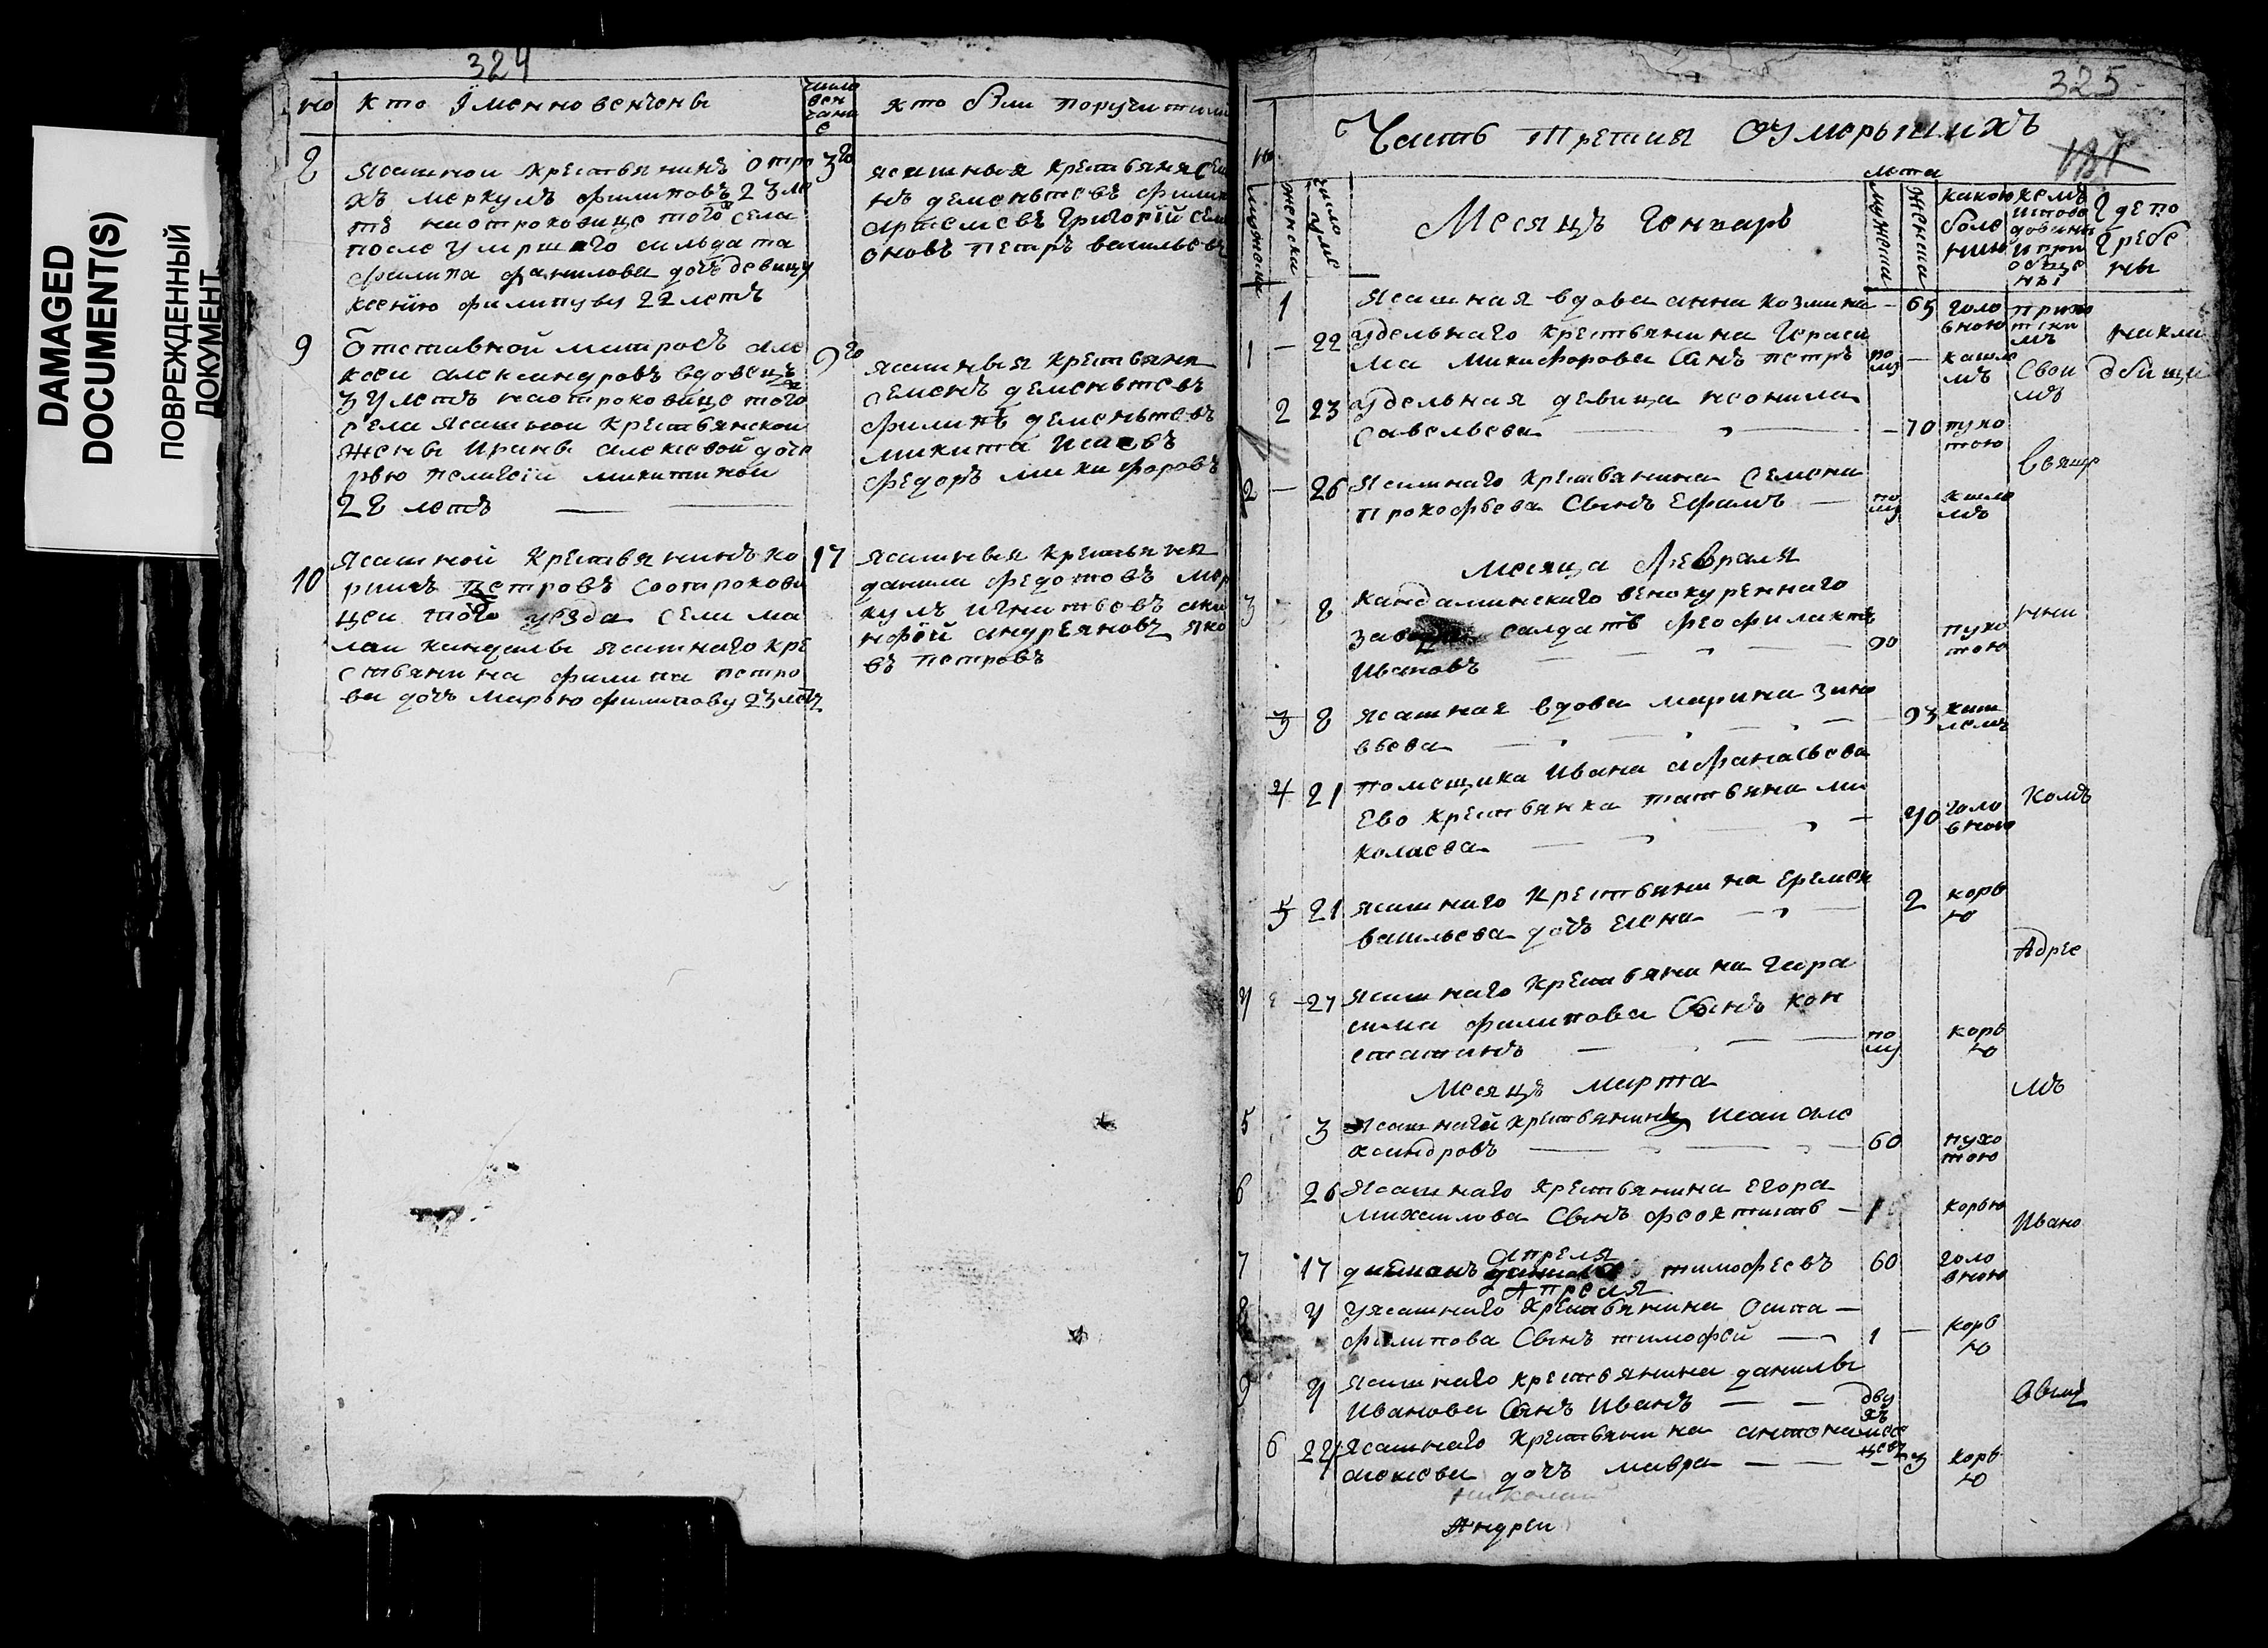 DAMAGED
DOCUMENT(S)
ПОВРЕЖДЕННЫЙ
ДОКУМЕНТ
324
но
кто Именно венчены
число венчание
кто были поручители
8
Ясашной крестьянинъ отро
къ меркулъ филиповъ 23 ле
тъ наотроковице того села
после умршаго салдата
филипа данилова дочъ девицу
ксению филипову 22 летъ
3го
ясашныя крестьяня Семе
нъ дементьевъ филипъ
артемьевъ Григорїй семи
оновъ петръ васильевъ
9
Отставной матросъ але
ксеи александровъ вдовецъ
34 летъ наотроковице того
села Ясашнои крестьянской
жены Ирины алексевой доче
рью пелагеїй микитиной
28 летъ
9го
ясашныя крестьяня
семенъ дементьевъ
филипъ дементьевъ
микита Исаевъ
федоръ микифоровъ
10
Ясашной крестьянинъ ки
рилъ петровъ Соотрокови
цеи того уезда села ма
лаи кандалы ясашнаго кре
стьянина филипа петро
ва дочъ Марью филипову 23 летъ
17
ясашныя крестьяня
данила федотовъ мер
кулъ игнатьевъ аки
нфїй андреяновъ яко
въ петровъ
325
Часть третия Оумершихъ
но
мужеска
женска
число умре
Месяцъ Генварь
лета
мужеска
женска
какою
боле
нию
кемъ
испове
дованы
и при
обще
ны
Где по
гребе
ны
1
Ясашная вдова анна козмина - 65 голо
вною
прихо
тски
мъ
1 - 22 Удельнаго крестьянина Гераси
ма Микифорова Сынъ петръ по
лу - кашле
мъ
Свои
мъ
накла
дбище
2 23 Удельная девица неонила
Савельева - 70 сухо
тою
Свяще
2 - 26 Ясашнаго крестьянина Семена
Прокофьева Сынъ Ефимъ - по
лу кашле
мъ
месяца Февраля
3 8 кандалинскаго венокуреннаго
завода салдатъ феофилактъ
Ивановъ 90 сухо
тою
нни
3 8 ясашная вдова марина Зино
вьева - 93 каш
лемъ
4 21 помещика Ивана афанасьева
Ево крестьянка татьяна ми
колаева 40 голо
вною
комъ
5 21 ясашнаго крестьянина еремея
васильева дочъ Елена 2 корь
ю
Адрее
4 27 ясашнаго крестьянина Гера
сима филипова Сынъ кон
стантинъ по
лу корь
ю
Месяцъ марта
мъ
5 3 Ясашнай крестьянинъ Исаи але
ксандровъ 60 сухо
тою
6 26 Ясашнаго крестьянина егора
михаилова Сынъ феоктистъ - 1 корью
Ивано
Апреля
7 17 тимофеевъ 60 голо
вною
Апреля
8 4 Уясашнаго крестьянина Осипа -
филипова Сынъ тимофей 1 - корь
ю
9 4 ясашнаго крестьянина данилы
Иванова Сынъ Иванъ дву
хъ
месе
цевъ
6 22 Ясашнаго крестьянина антона
алексева дочъ мавра - 3 корь
ю
Николаи
Андреи